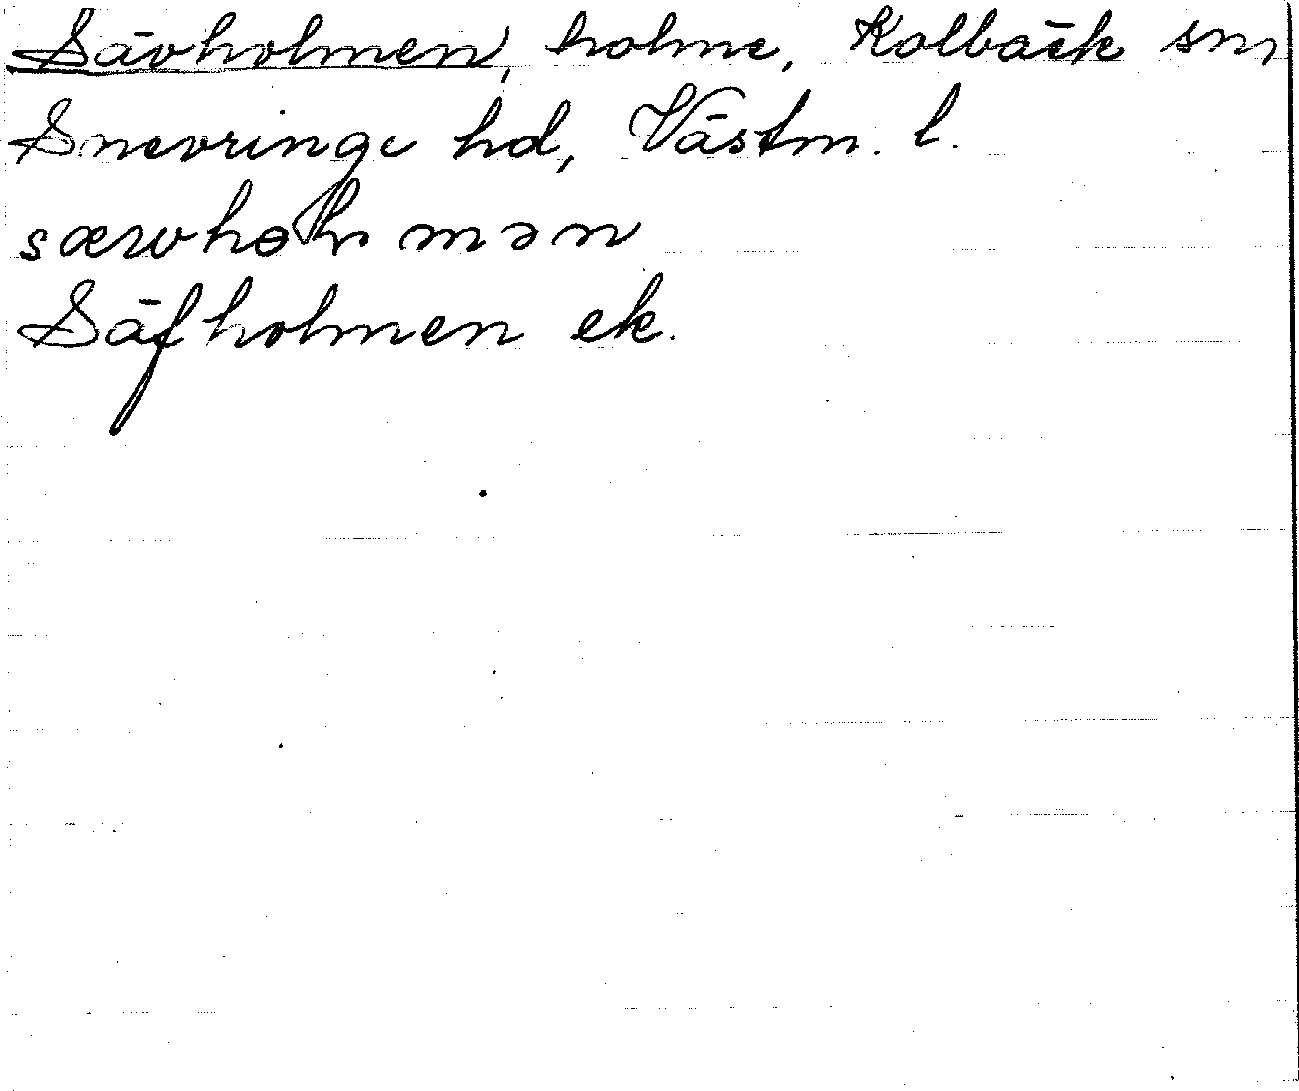 Sävholmen, holme, Kolbäck sn,
Snevringe hd, Västm. l.
Säfholmen ek.